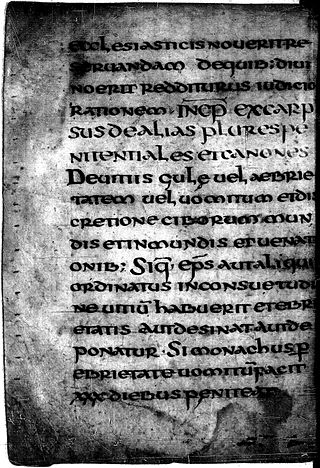 eccl,esiasticis noverit re
servandam de quib: divi
no erit redditurus iudicio
rationem · INCP EXCARP
SUS DE AL,IAS PLURES PE
NITENTIAL,ES ET CANONES
De vitiis gul,ę vel, aebrie
tatem vel, vomitum et dis
cretione ciborum mun
dis et inmundis et venat
onib: Siq̄ ep̄s aut al,iqui
ordinatus in consuetudi
ne vitiū habuerit et ebr
etatis aut desinat aut de
ponatur · Si monachus p̱
ebrietate vomitū facit
xxx diebus peniteat